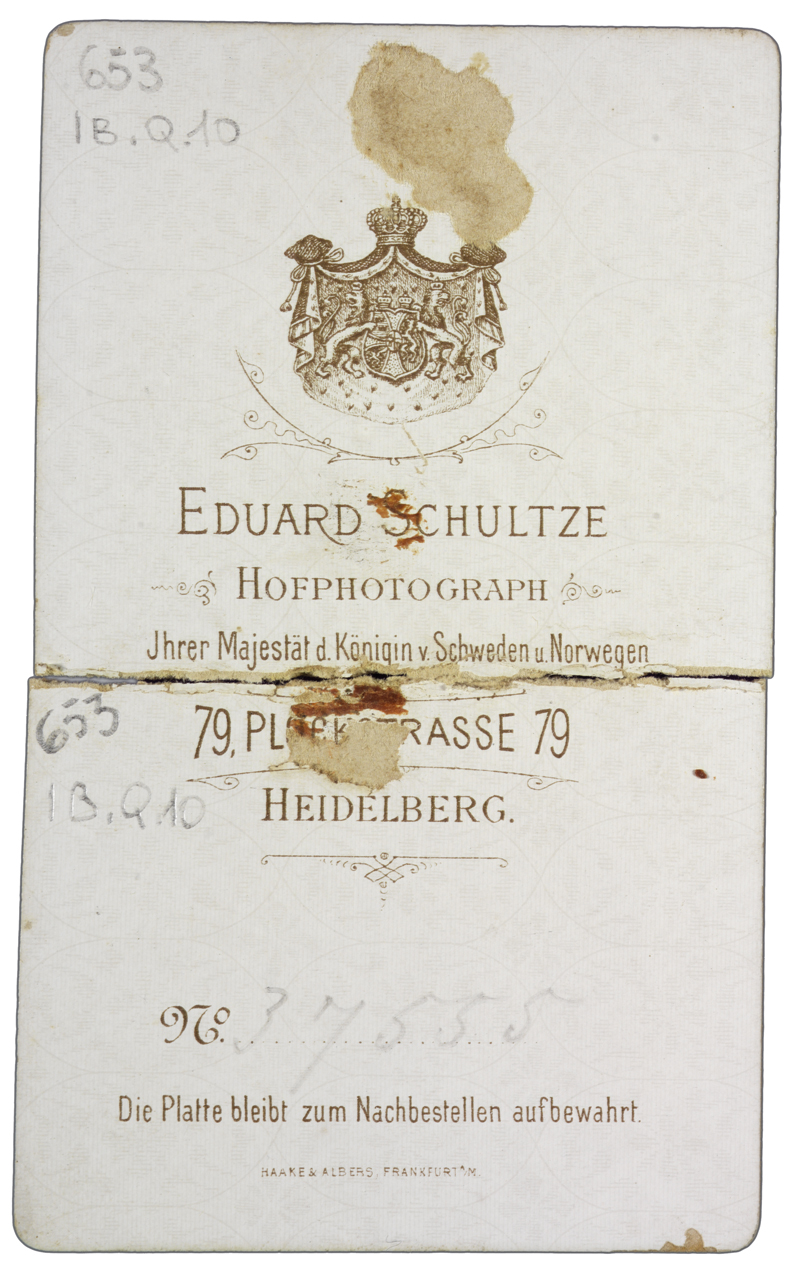 653
1B.Q.10
EDUARD SCHULTZE
HOFPHOTOGRAPH
Jhrer Majestät d. Königin v. Schweden u. Norwegen
653
79, PLÖCKSTRASSE 79
1B.Q.10
HEIDELBERG.
No. 37555
Die Platte bleibt zum Nachbestellen aufbewahrt.
HAAKE & ALBERS, FRANKFURT A/M.